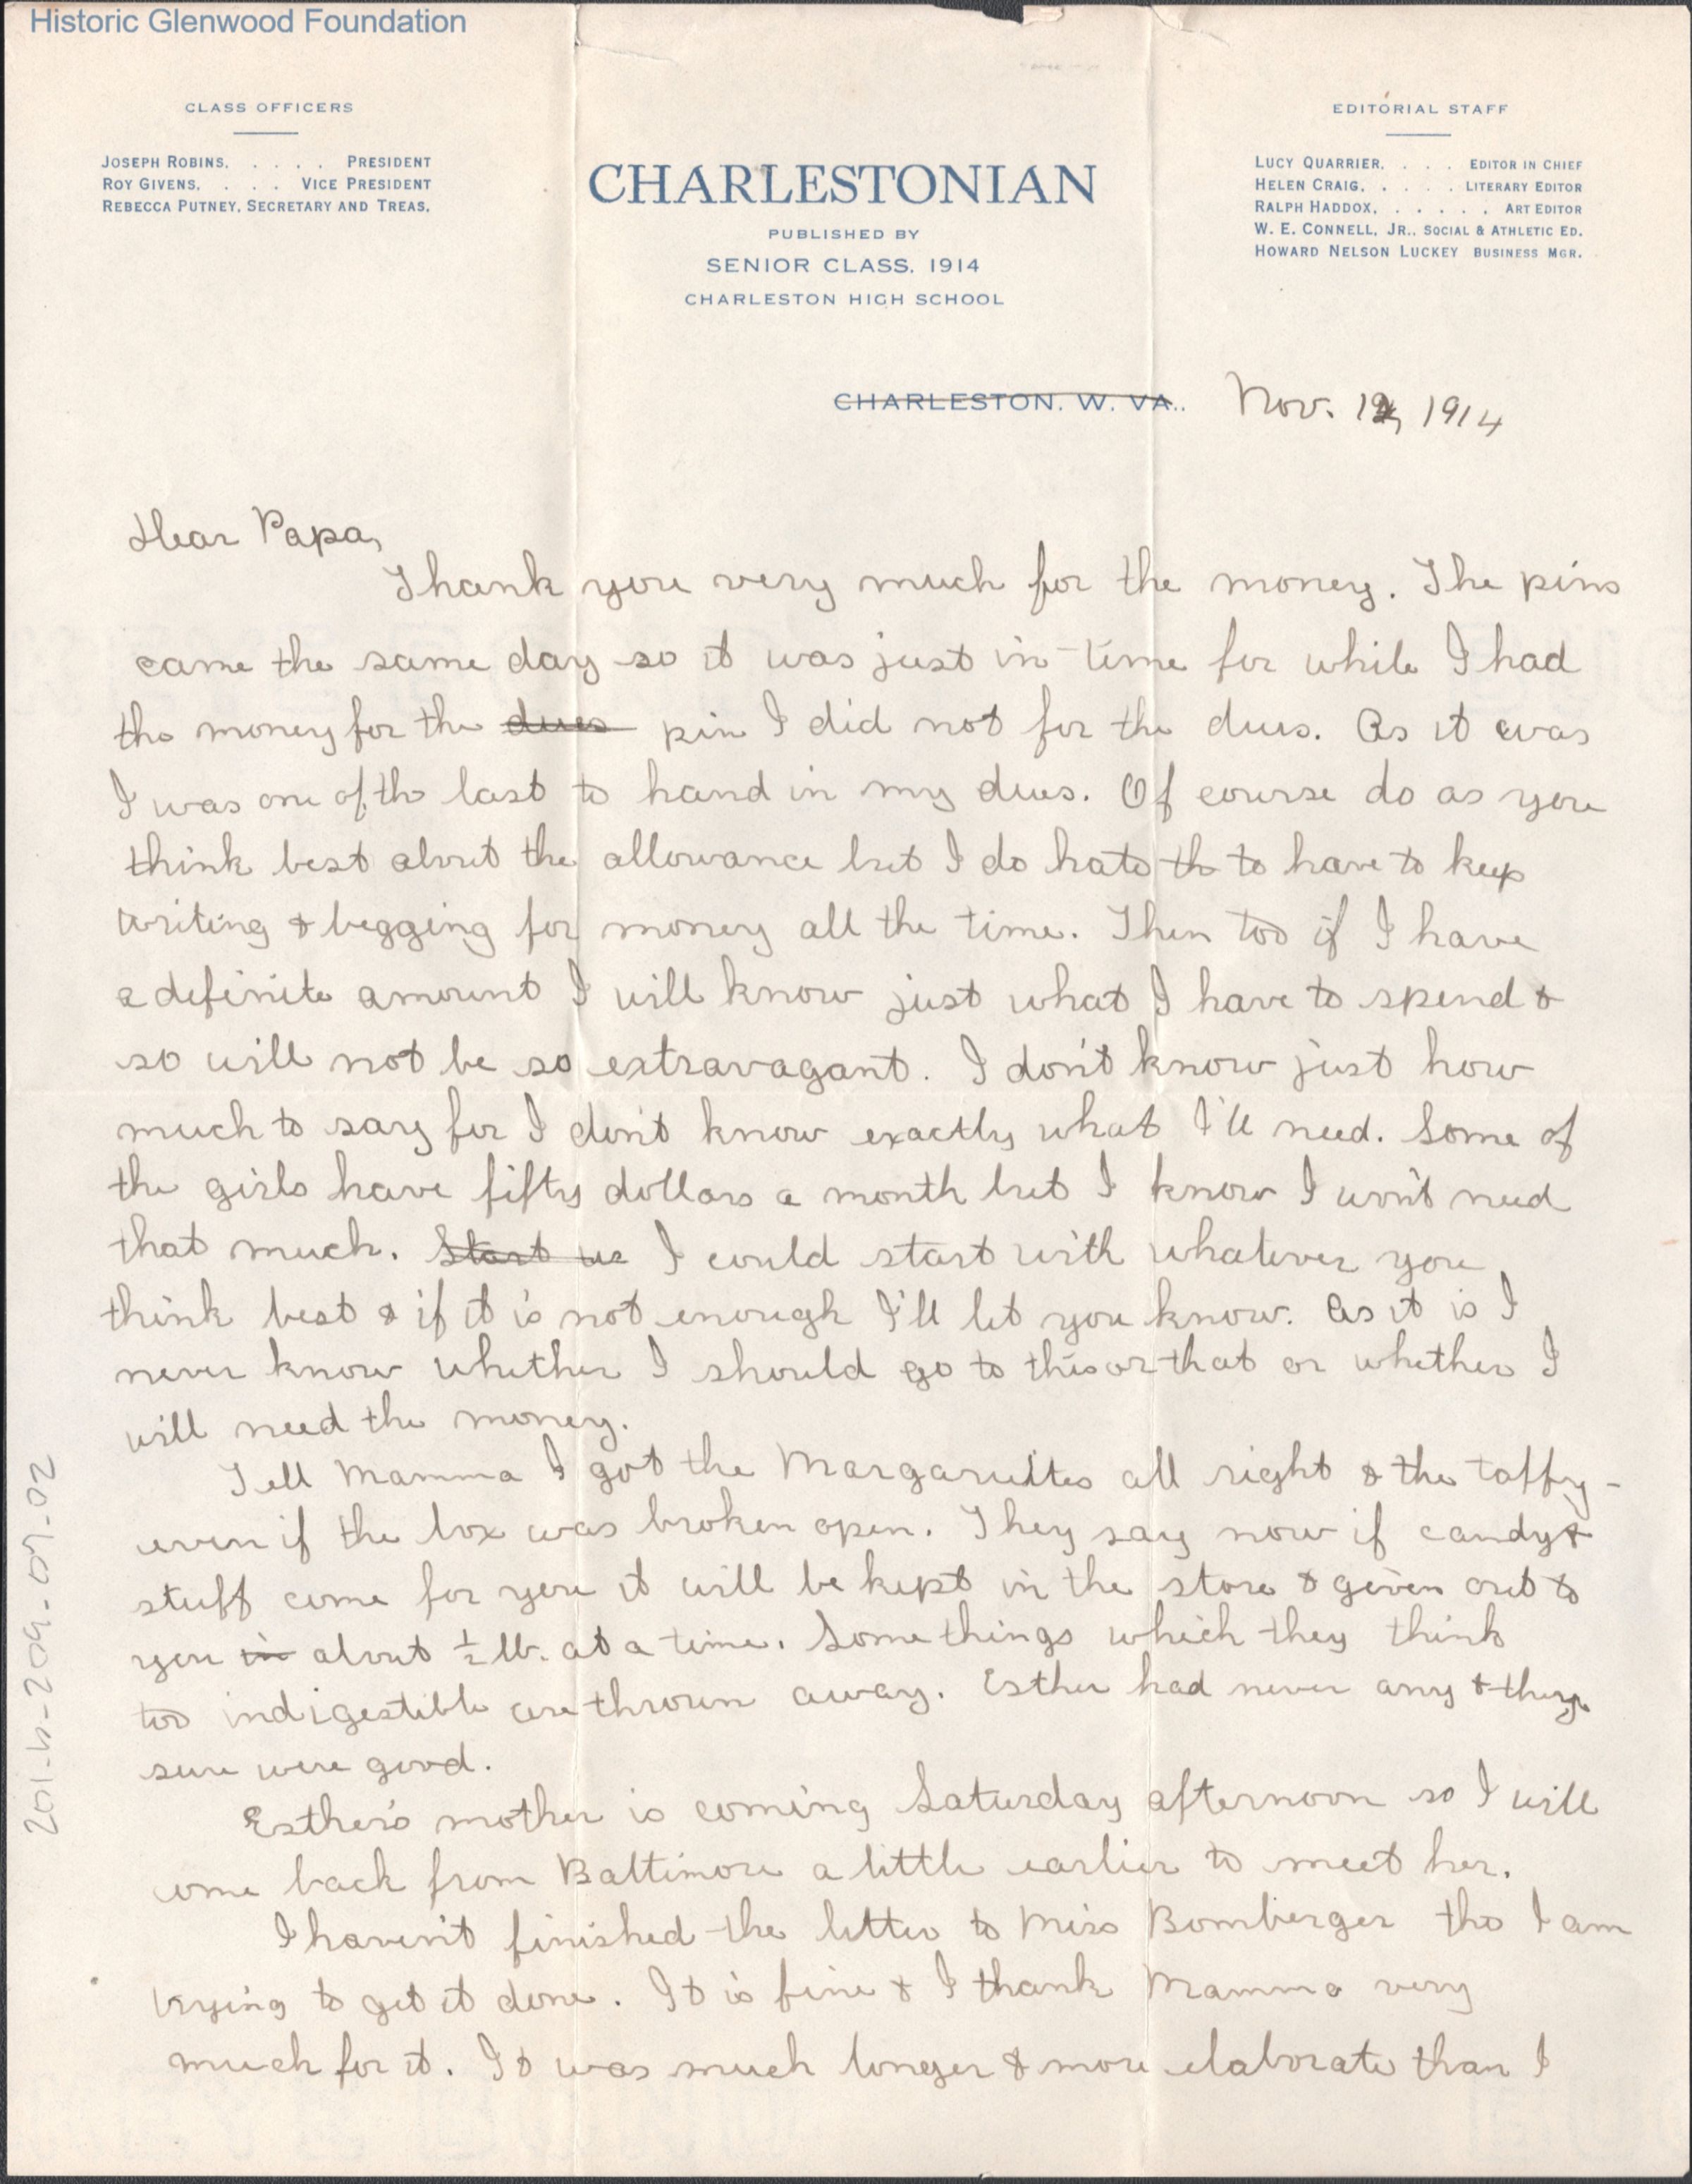 Historic Glenwood Foundation
CLASS OFFICERS
JOSEPH ROBINS. . . . . PRESIDENT
ROY GIVENS. . . . VICE PRESIDENT
REBECCA PUTNEY, SECRETARY AND TREAS.
CHARLESTONIAN
PUBLISHED BY
SENIOR CLASS, 1914
CHARLESTON HIGH SCHOOL
EDITORIAL STAFF
LUCY QUARRIER. . . . EDITOR IN CHIEF
HELEN CRAIG. . . . . LITERARY EDITOR
RALPH HADDOX, . . . . . ART EDITOR
W. E. CONNELL, JR., SOCIAL & ATHLETIC ED.
HOWARD NELSON LUCKEY BUSINESS MGR.
CHARLESTON, W. VA.. Nov. 12, 1914
Dear Papa,
Thank you very much for the money. The pins
came the same day so it was just in time for while I had
the money for the dues pin I did not for the dues. As it was
I was one of the last to hand in my dues. Of course do as you
think best about the allowance but I do hate th to have to keep
writing & begging for money all the time. Then too if I have
a definite amount I will know just what I have to spend &
so will not be so extravagant. I don't know just how
much to say for I don't know exactly what I'll need. Some of
the girls have fifty dollars a month but I know I won't need
that much. Start us I could start with whatever you
think best & if it is not enough I'll let you know. As it is I
never know whether I should go to this or that or whether I
will need the money.
Tell Mamma I got the Margaruites all right & the taffy -
even if the box was broken open. They say now if candy &
stuff come for you it will be kept in the store & given out to
you in about ½ lb. at a time. Some things which they think
too indigestible are thrown away. Esther had never any & they
sure were good.
Esther's mother is coming Saturday afternoon so I will
come back from Baltimore a little earlier to meet her.
I haven't finished the letter to Miss Bomberger tho I am
trying to get it done. It is fine & I thank Mamma very
much for it. It was much longer & more elaborate than I
201.h-209.07.02